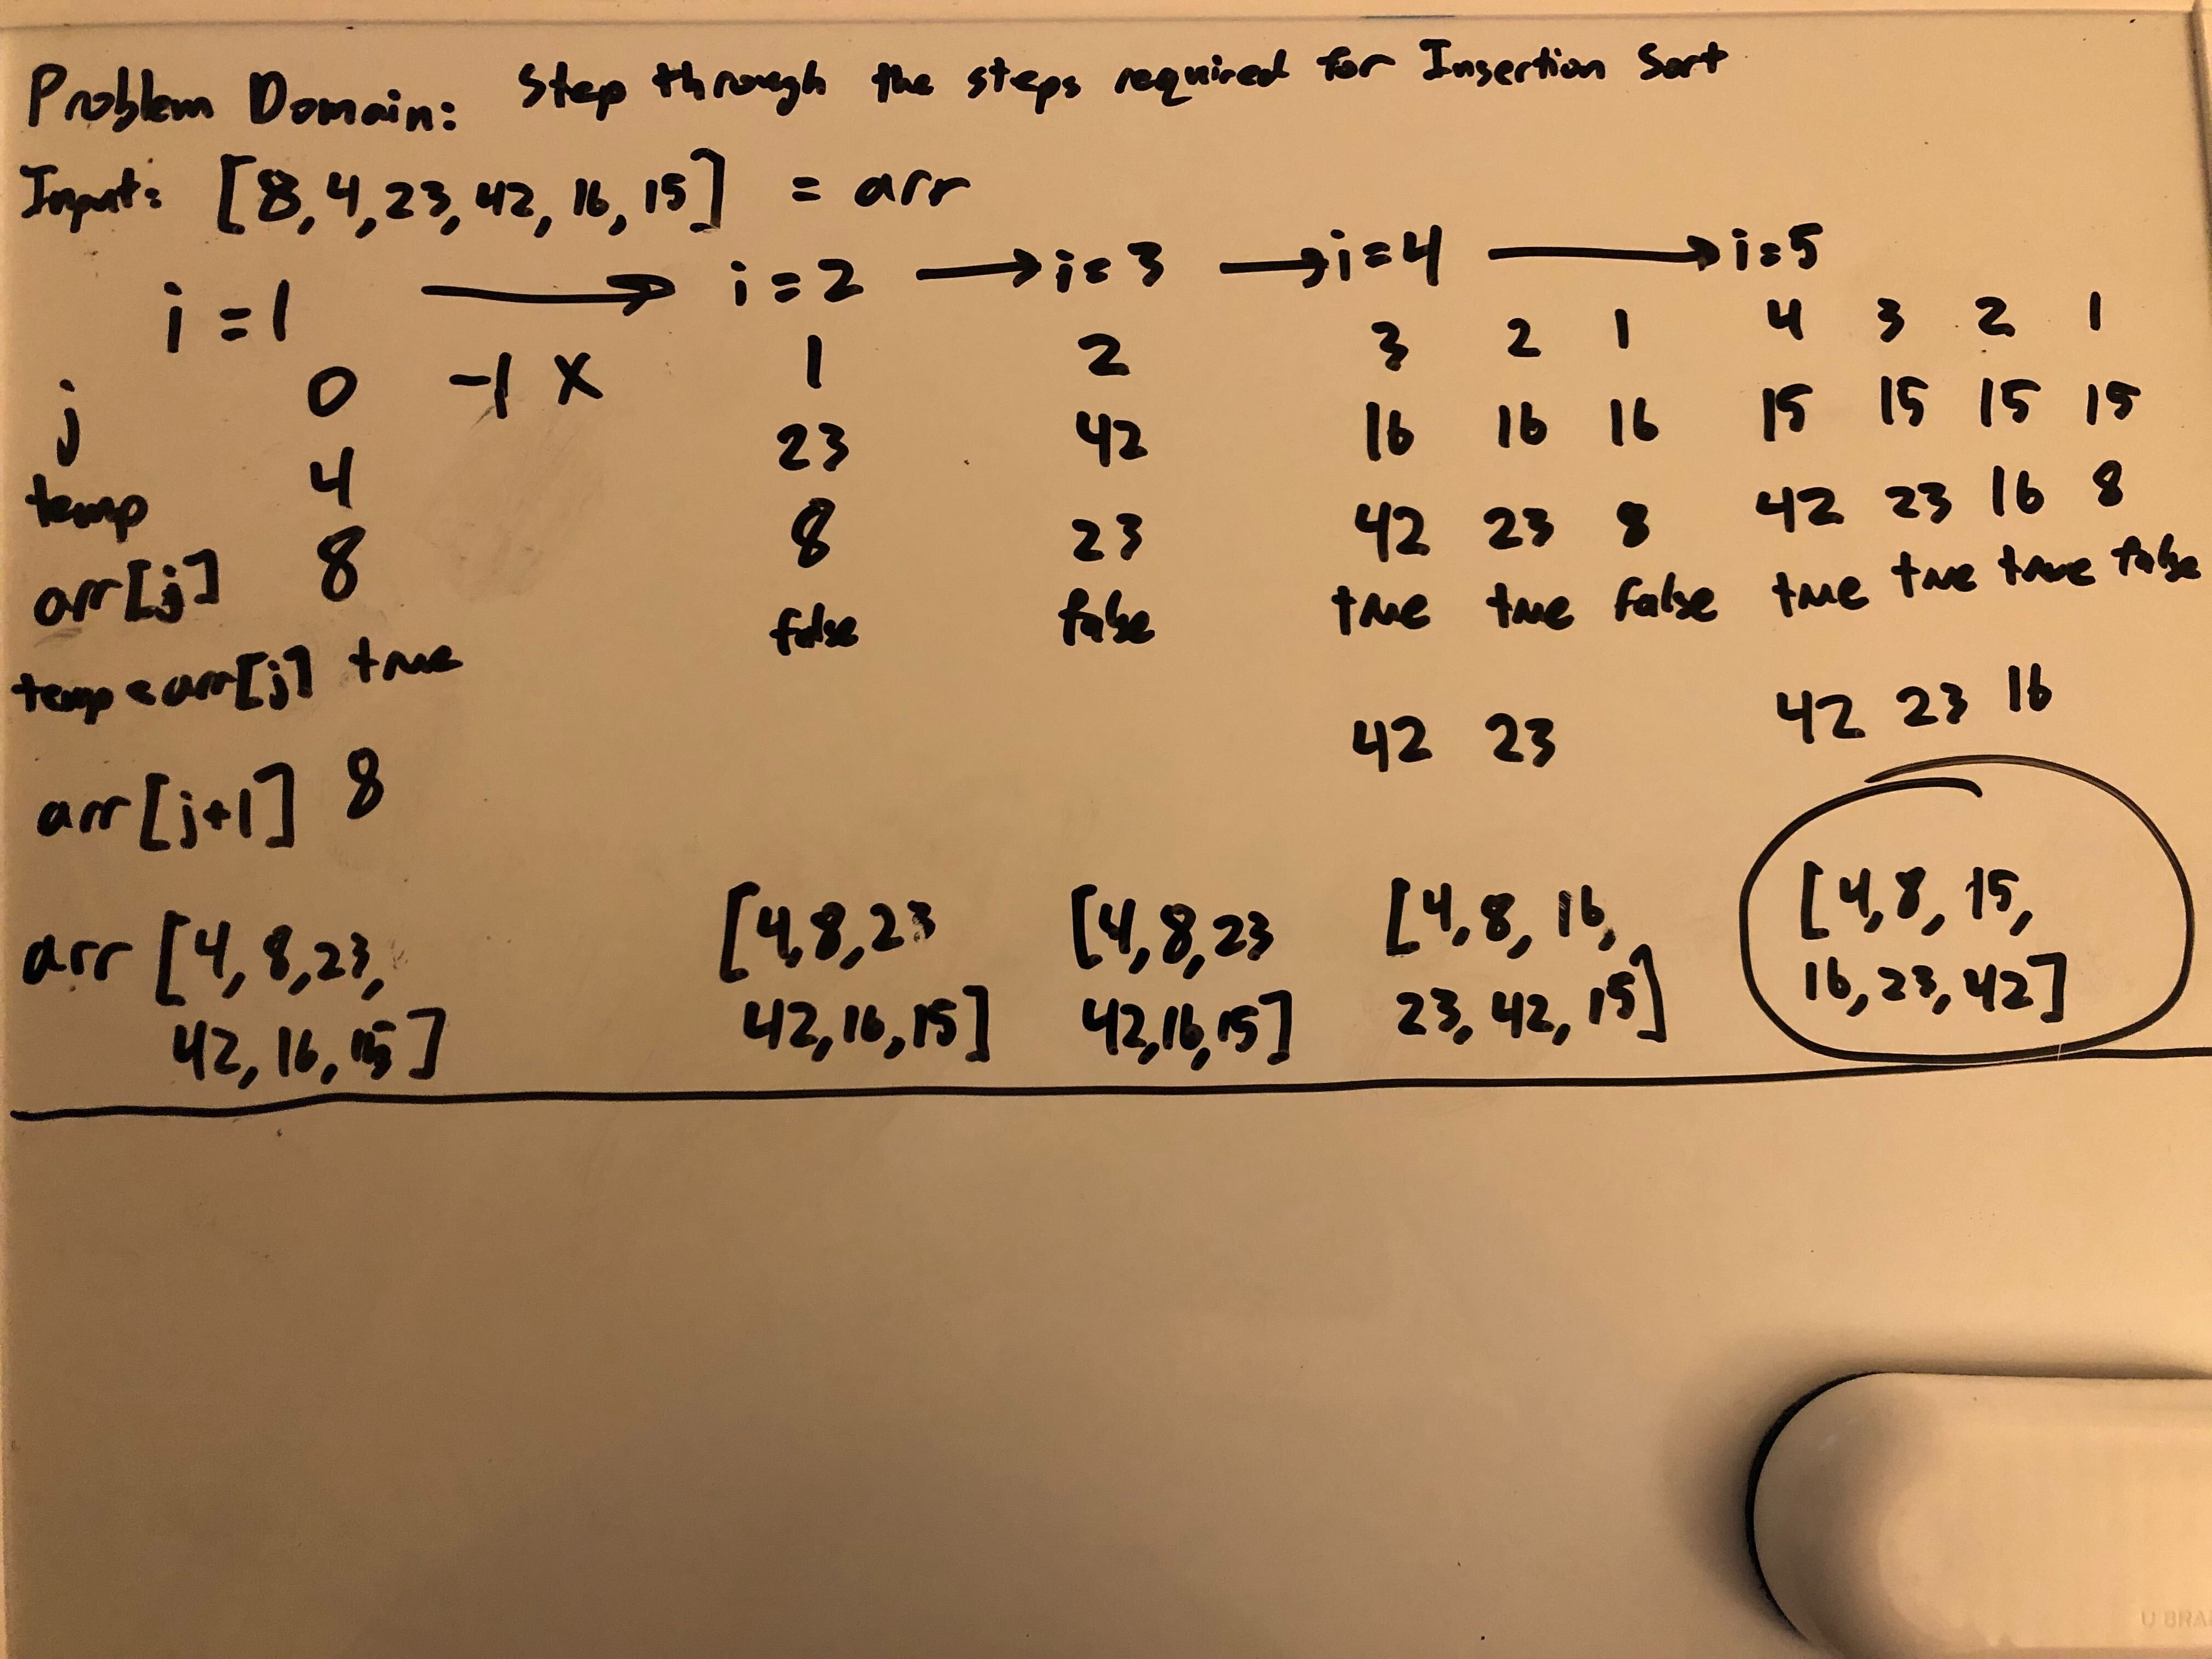 Problem Domain: Step through the steps required for Insertion Sort
Input: [8, 4, 23, 42, 16, 15] = arr
i = 1 → i = 2 → i = 3 → i = 4 → i = 5
j 0 -1 X 1 2 3 2 1 4 3 2 1
temp 4 23 42 16 16 16 15 15 15 15
arr[j] 8 8 23 42 23 8 42 23 16 8
temp < arr[j] true false false true true false true true true false
arr[j+1] 8 42 23 42 23 16
arr [4, 8, 23, [4, 8, 23 [4, 8, 23 [4, 8, 16, [4, 8, 15,
42, 16, 15] 42, 16, 15] 42, 16, 15] 23, 42, 15] 16, 23, 42]